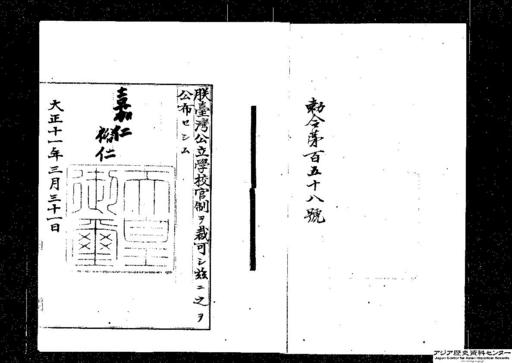 勅令第百五十八號
朕臺灣公立學校官制ヲ裁可シ茲ニ之ヲ
公布セシム
嘉仁
裕仁
天皇
御璽
大正十一年三月三十一日
アジア歴史資料センター
Japan Center for Asian Historical Records